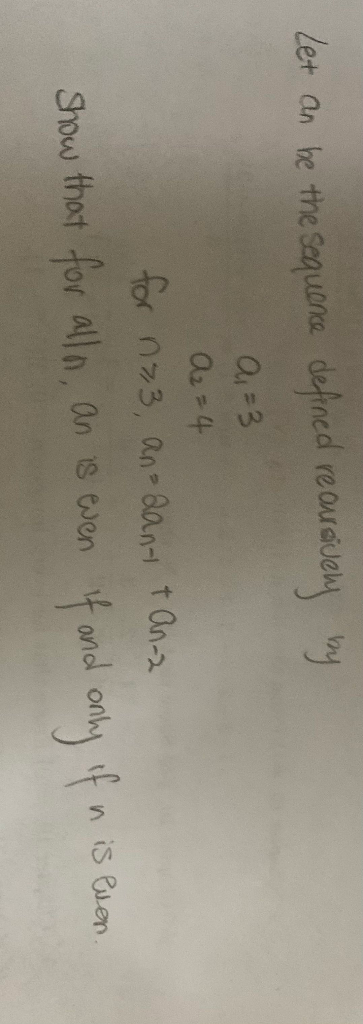 Let an be the sequence defined recursively by
a₁ = 3
a₂ = 4
for n≥3, an = 2an-1 + an-2
Show that for all n, an is even if and only if n is even.